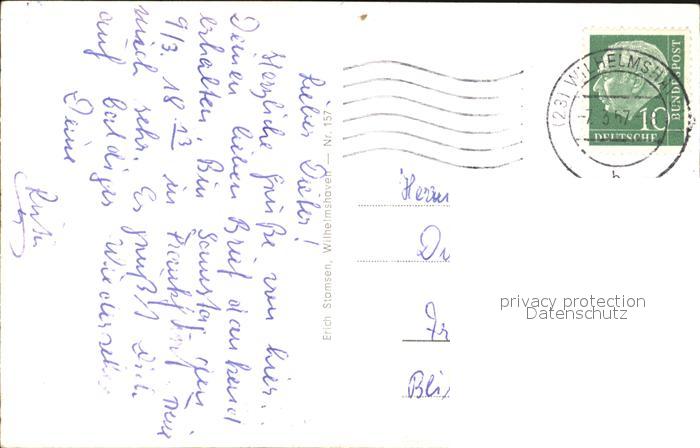 Lieber Dieter!
Herzliche Grüße von hier.
Deinen lieben Brief dankend
erhalten. Bin Samstag den
9/3. 18.13 in Frankfurt.
mich sehr. Es grüßt Dich
auf baldiges Wiedersehen
Deine
Erich Stamsen, Wilhelmshaven — Nr. 157
(23) WILHELMSHA
3.57
h
10
DEUTSCHE
BUNDESPOST
Herrn
Di
Fr
Bli
privacy protection
Datenschutz